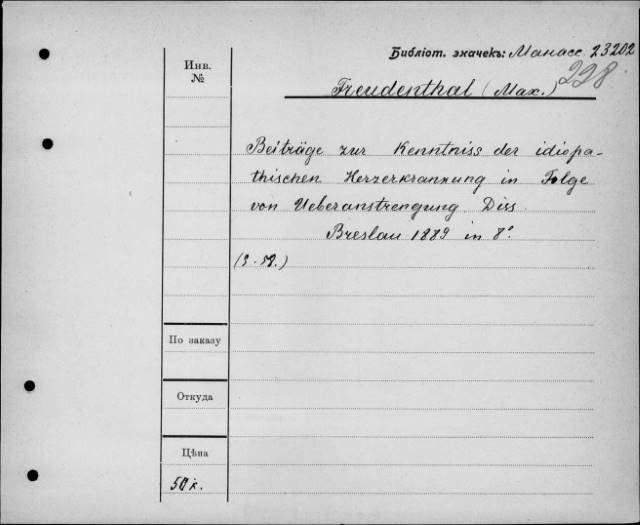 Библіот. значекъ: Манасс. 23202
228
Инв.
№
Freudenthal (Max.)
Beiträge zur Kenntniss der idiopa-
thischen Herzerkrankung in Folge
von Ueberanstrengung. Diss.
Breslau 1889 in 8°
По заказу
Откуда
Цѣна
50 к.